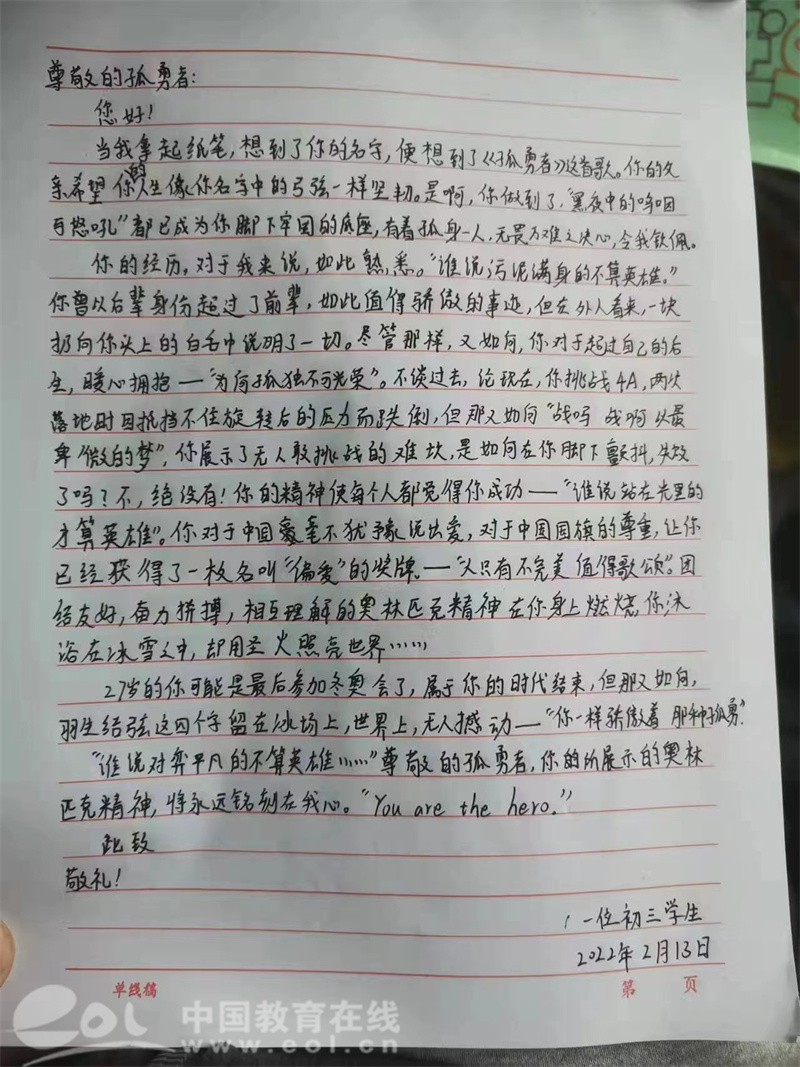 尊敬的孤勇者：
您好！
当我拿起纸笔，想到了你的名字，便想到了《孤勇者》这首歌。你的父
亲希望你的人生像你名字中的弓弦一样坚韧。是啊，你做到了，"黑夜中的呜咽
与怒吼"都已成为你脚下牢固的底座，有着孤身一人，无畏万难之决心，令我钦佩。
你的经历，对于我来说，如此熟悉。"谁说污泥满身的不算英雄。"
你曾以后辈身份超过了前辈，如此值得骄傲的事迹，但在外人看来，一块
扔向你头上的白毛巾说明了一切。尽管那样，又如何，你对于超过自己的后
生，暖心拥抱—"为何孤独不可光荣"。不谈过去，论现在，你挑战4A，两次
落地时因抵挡不住旋转后的压力而跌倒，但那又如何"战吗 战啊 以最
卑微的梦"，你展示了无人敢挑战的难坎，是如何在你脚下颤抖，失败
了吗？不，绝没有！你的精神使每个人都觉得你成功—"谁说站在光里的
才算英雄"。你对于中国毫不犹豫说出爱，对于中国国旗的尊重，让你
已经获得了一枚名叫"偏爱"的奖牌。—"人只有不完美 值得歌颂"。团
结友好，奋力拼搏，相互理解的奥林匹克精神在你身上燃烧，你沐
浴在冰雪之中，却用圣火照亮世界……
27岁的你可能是最后参加冬奥会了，属于你的时代结束，但那又如何，
羽生结弦这四个字留在冰场上，世界上，无人撼动—"你一样骄傲着 那种孤勇"。
"谁说对弈平凡的不算英雄……"尊敬的孤勇者，你的所展示的奥林
匹克精神，将永远铭刻在我心。"You are the hero."
此致
敬礼！
一位初三学生
2022年2月13日
单线稿 第 页
eol 中国教育在线
www.eol.cn